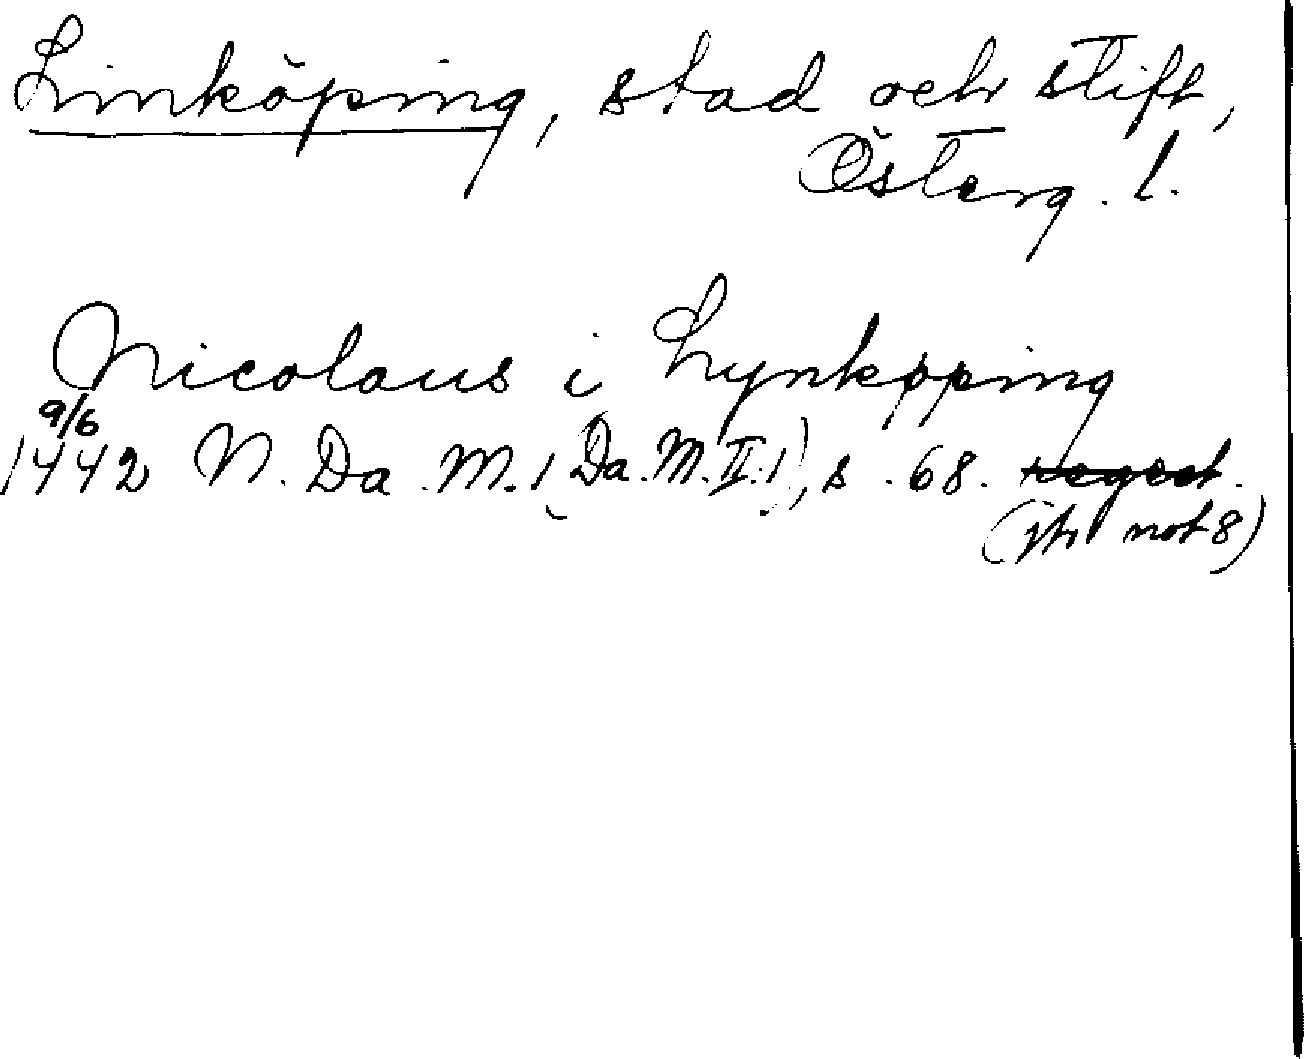 Linköping, stad och stift,
Österg. l.
Nicolaus i Lynkøping
9/6
1442 N. Da. M. 1 (Da. M. II: 1), s. 68. regest.
(jfr not 8)